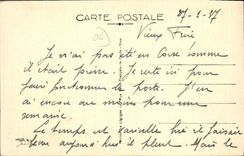 CARTE POSTALE
27-1-37
Vieux Frère
Je n'ai pas été en Corse comme
il était prévu. Je reste ici pour
faire fonctionner le poste. J'en
ai encore au moins pour une
semaine.
Le temps est variable hier il faisait
beau aujourd'hui il pleut. Mais le